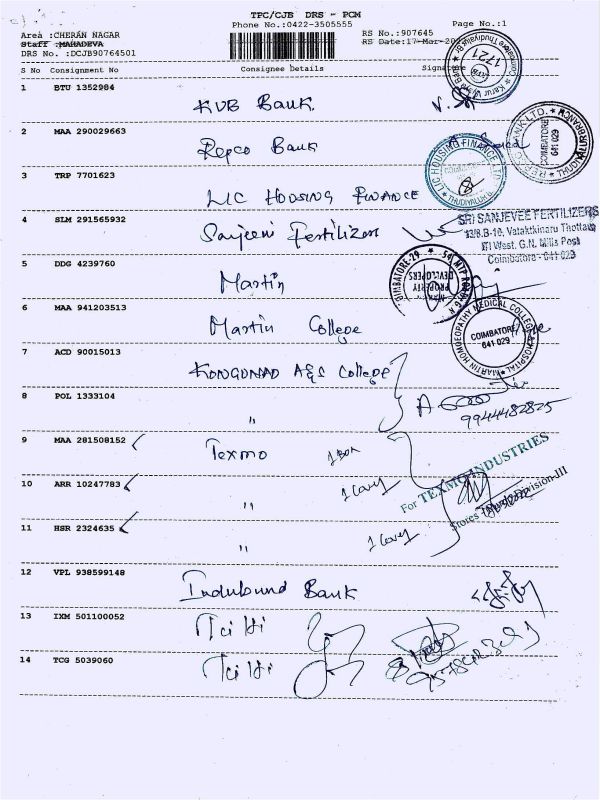 TPC/CJB DRS - PCM
Phone No.:0422-3505555
Page No.:1
Area :CHERAN NAGAR
Staff :MAHADEVA
DRS No. :DCJB90764501
RS No.:907645
RS Date:17-Mar-
S No Consignment No Consignee Details Signature
1 BTU 1352984 KVB Bank
2 MAA 290029663 Repco Bank
REPCO BANK LTD. COIMBATORE 641 029
3 TRP 7701623 LIC HOUSING FINANCE
LIC HOUSING FINANCE LTD.
4 SLM 291565932 Sanjeevi Fertilizers
SRI SANJEVEE FERTILIZERS
13/8.B-10, Vataktkinaru Thottam
ITI West. G.N. Mills Post
Coimbatore - 641 029
5 DDG 4239760 Martin
6 MAA 941203513 Martin College
MARTIN HOMOEOPATHY MEDICAL COLLEGE & HOSPITAL COIMBATORE 641 029
7 ACD 90015013 KONGUNAD A&S College
8 POL 1333104 "
9944482825
9 MAA 281508152 Texmo 1 Box
10 ARR 10247783 " 1 Cover
For TEXMO INDUSTRIES
Stores Division-III
11 HSR 2324635 " 1 Cover
12 VPL 938599148 Indusbund Bank
13 IXM 501100052
14 TCG 5039060